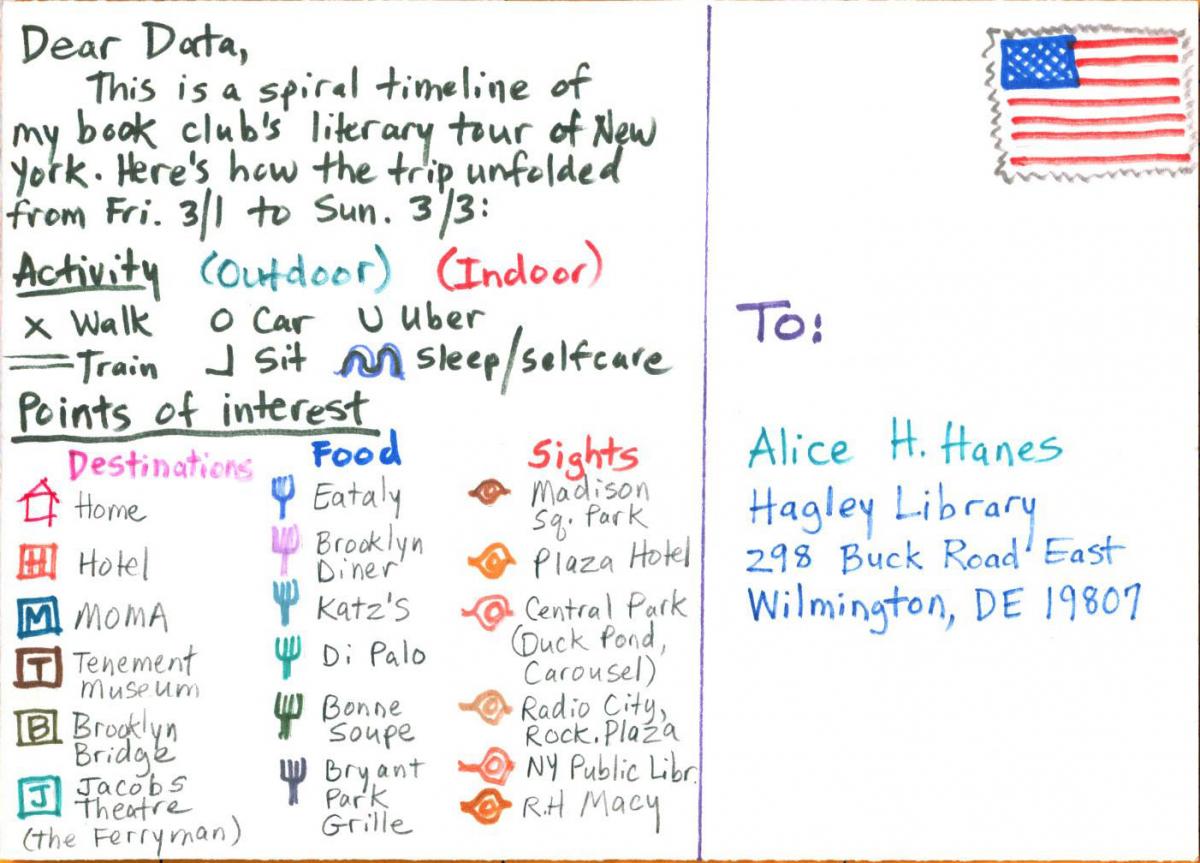 Dear Data,
This is a spiral timeline of
my book club's literary tour of New
York. Here's how the trip unfolded
from Fri. 3/1 to Sun. 3/3:
Activity (Outdoor) (Indoor)
x Walk O Car U Uber
Train Sit Sleep/selfcare
Points of interest
Destinations
Home
H Hotel
M MOMA
T Tenement
Museum
B Brooklyn
Bridge
J Jacobs
Theatre
(the Ferryman)
Food
Eataly
Brooklyn
Diner
Katz's
Di Palo
Bonne
Soupe
Bryant
Park
Grille
Sights
Madison
Sq. Park
Plaza Hotel
Central Park
(Duck Pond,
Carousel)
Radio City,
Rock. Plaza
NY Public Libr.
R.H Macy
To:
Alice H. Hanes
Hagley Library
298 Buck Road East
Wilmington, DE 19807